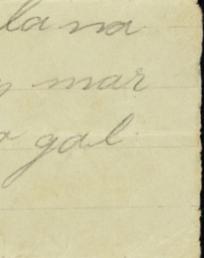 lana
mar
gal